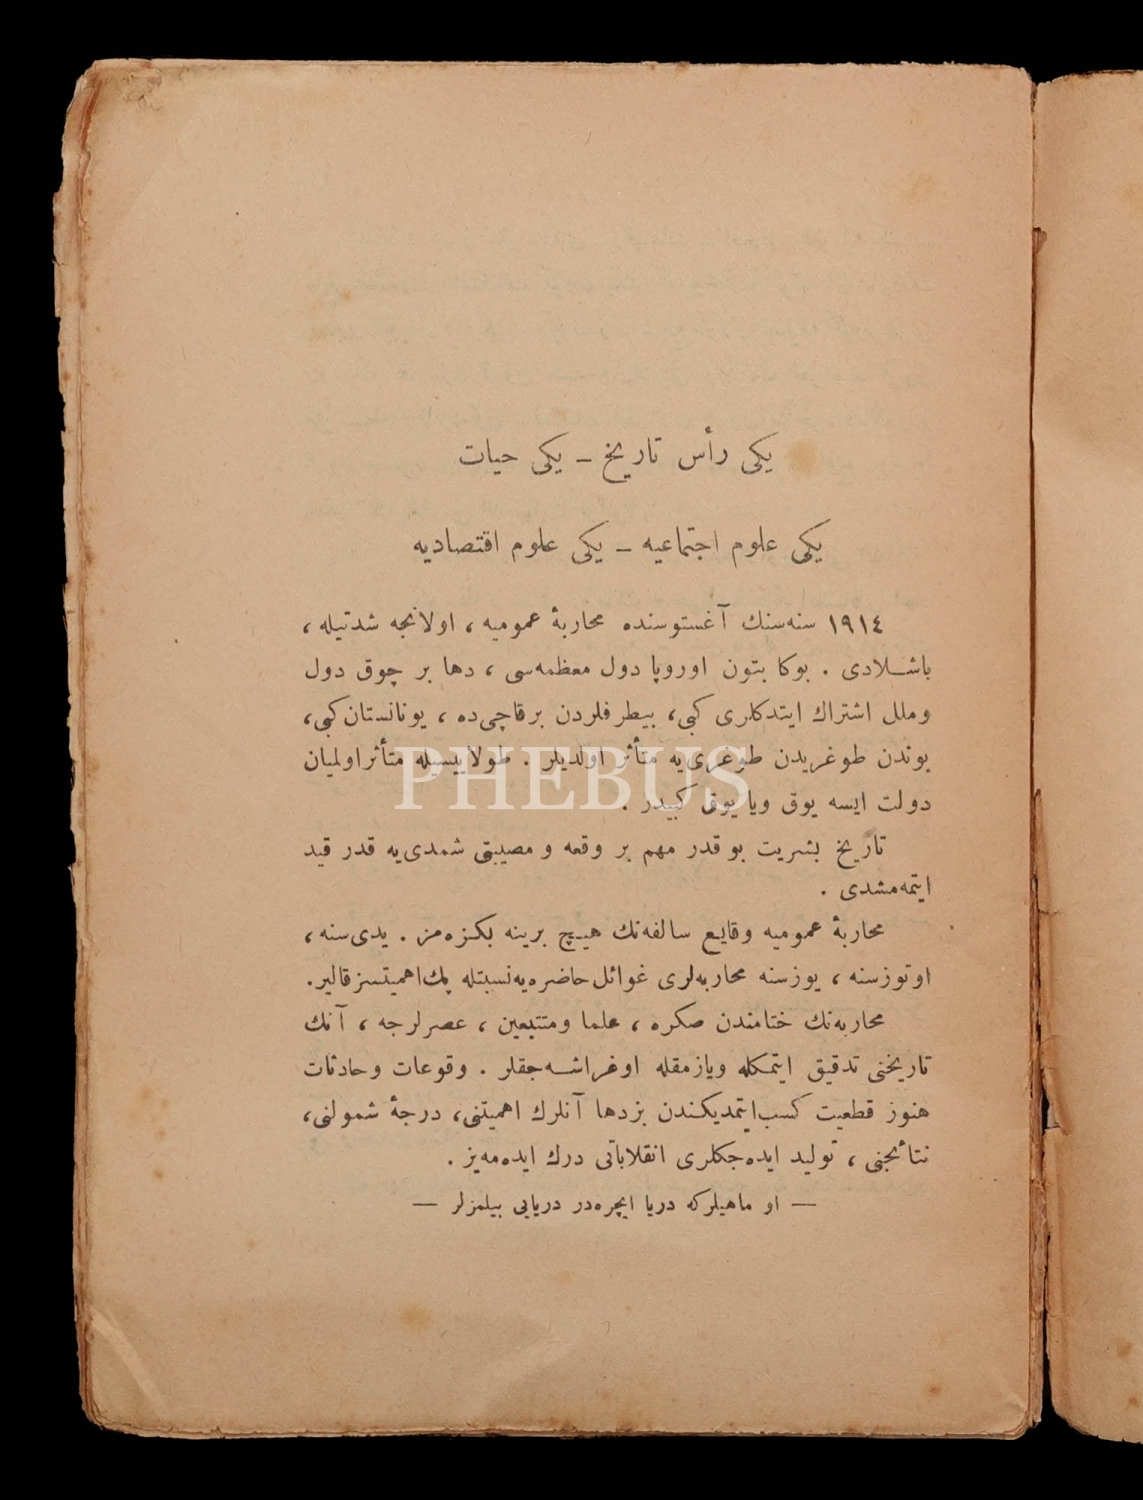 یكی رأس تاریخ ــ یكی حیات
یكی علوم اجتماعیه ــ یكی علوم اقتصادیه
١٩١٤ سنه‌سنك آغستوسنده محاربهٔ عمومیه ، اولانجه شدتیله ،
باشلادی . بوكا بتون اوروپا دول معظمه‌سی ، دها بر چوق دول
وملل اشتراك ایتدكلری كبی، بیطرفلردن برقاچی‌ده ، یونانستان‌كبی،
بوندن طوغریدن طوغری‌یه متأثر اولدیلر . طولاییسیله متأثر اولمیان
دولت ایسه یوق ویا یوق كبیدر .
PHEBUS
تاریخ بشریت بو قدر مهم بر وقعه و مصیبتی شمدی‌یه قدر قید
ایتمه‌مشدی .
محاربهٔ عمومیه وقایع سالفه‌نك هیچ برینه بكزه‌مز . یدی‌سنه ،
اوتوزسنه ، یوزسنه محاربه‌لری غوائل حاضره‌یه نسبتله پك‌اهمیتسز قالیر.
محاربه‌نك ختامندن صكره ، علما ومتتبعین ، عصرلرجه ، آنك
تاریخنی تدقیق ایتمكله ویازمقله اوغراشه‌جقلر . وقوعات وحادثات
هنوز قطعیت كسب‌ایتمدیكندن بزدها آنلرك اهمیتنی، درجهٔ شمولنی،
نتائجنی ، تولید ایده‌جكلری انقلاباتی درك ایده‌مه‌یز .
— او ماهیلركه دریا ایچره‌در دریایی بیلمزلر —